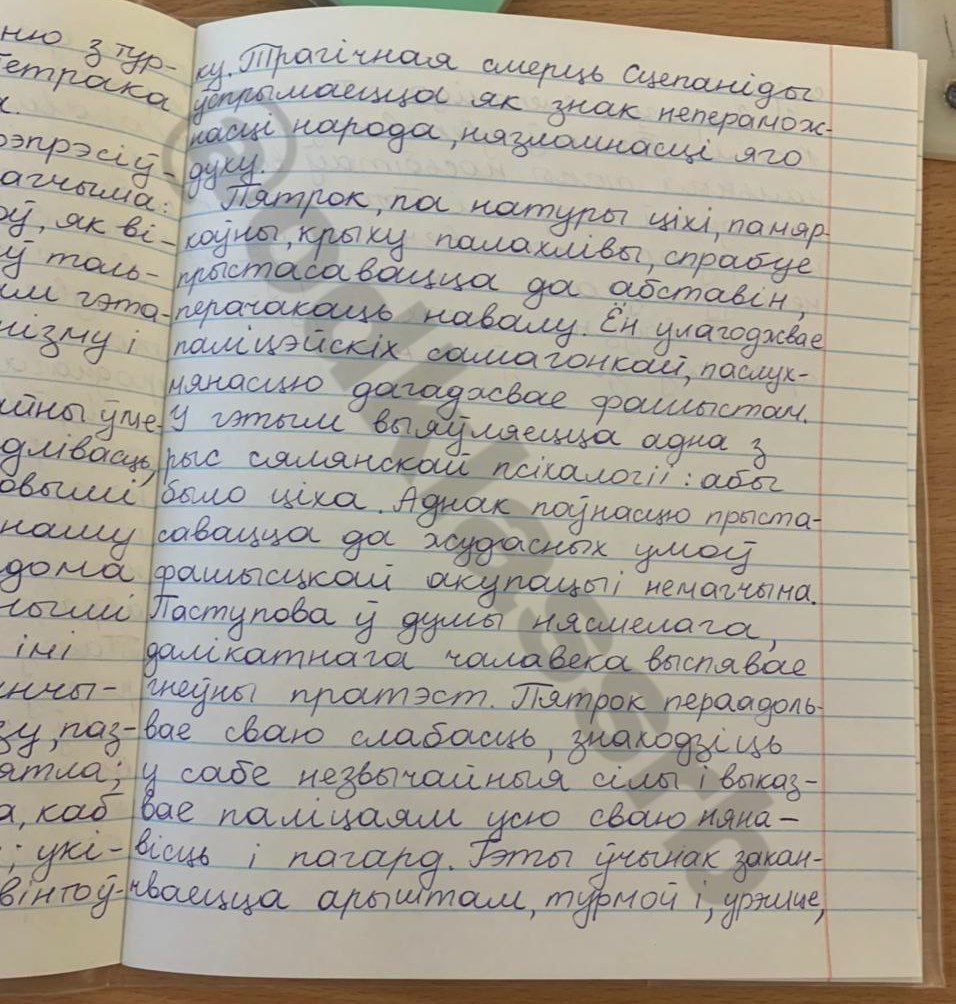 ню з тур-
Петрака
а.
рэпрэсіў-
магчыма:
оў, як ві-
ў толь-
ым гэта-
нізму і
айны ўце-
длівасць,
овымі
нашу
дома
ными
імі
інчы-
зу, паз-
ятла;
а, каб
; укі-
вінтоў-
ку. Трагічная смерць Сцепаніды
успрымаецца як знак неперамож-
насці народа, нязломнасці яго
духу.
Пятрок, па натуры ціхі, памяр-
коўны, крыху палахлівы, спрабуе
прыстасавацца да абставін,
перачакаць навалу. Ён улагоджвае
паліцэйскіх самагонкай, паслух-
мянасцю дагаджвае фашыстам.
У гэтым выяўляецца адна з
рыс сялянскай псіхалогіі: абы
было ціха. Аднак поўнасцю прыста-
савацца да жудасных умоў
фашысцкай акупацыі немагчына.
Паступова ў думы нясмелага,
далікатнага чалавека выспявае
гнеўны пратэст. Пятрок пераадоль-
вае сваю слабасць, знаходзіць
у сабе незвычайныя сілы і выказ-
вае паліцаям усю сваю няна-
вісць і пагард. Гэты ўчынак закан-
чваецца арыштам, турмой і, урэшце,
@odklaserb